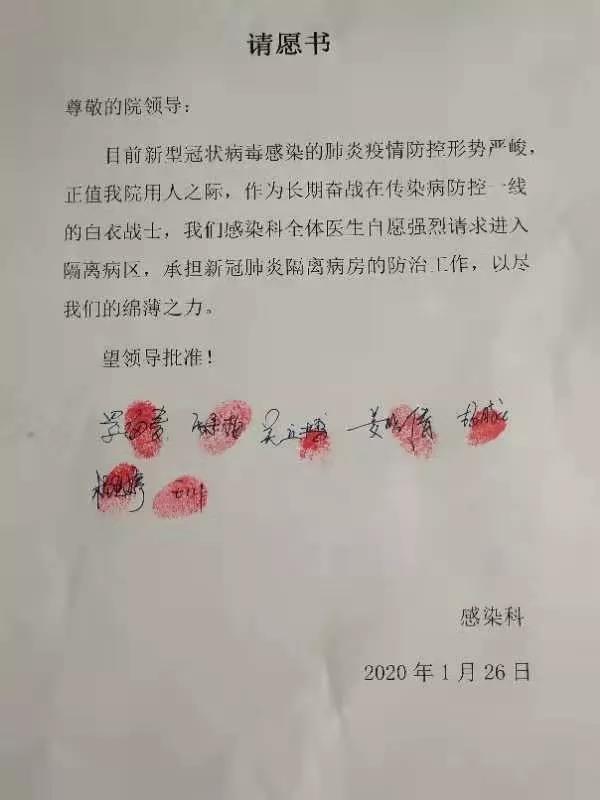 请愿书
尊敬的院领导：
目前新型冠状病毒感染的肺炎疫情防控形势严峻，
正值我院用人之际，作为长期奋战在传染病防控一线
的白衣战士，我们感染科全体医生自愿强烈请求进入
隔离病区，承担新冠肺炎隔离病房的防治工作，以尽
我们的绵薄之力。
望领导批准！
感染科
2020 年 1 月 26 日